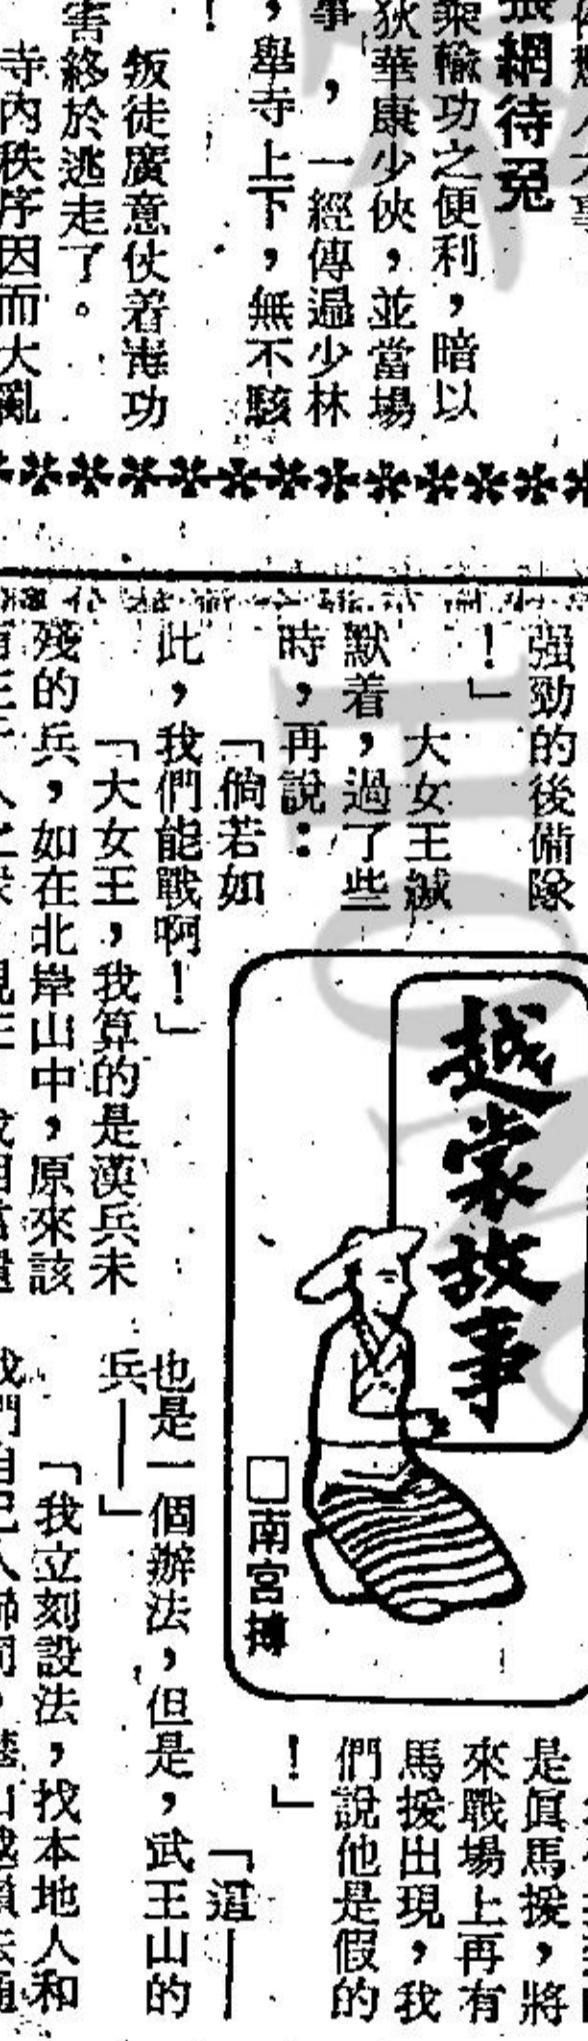 網待兎
乘輸功之便利，暗以
狄華康少俠，並當場
事，一經傳遍少林
，舉寺上下，無不駭
！
叛徒廣意仗着毒功
害終於逃走了。
寺內秩序因而大亂
越裳故事
□南宮搏
强勁的後備隊
！」
大女王緘
默着，過了些
時，再說：
「倘若如
此，我們能戰啊！」
「大女王，我算的是漢兵未
殘的兵，如在北岸山中，原來該
是眞馬援，將
來戰場上再有
馬援出現，我
們說他是假的
！」
「這——
也是一個辦法，但是，武王山的
兵——」
「我立刻設法，找本地人和